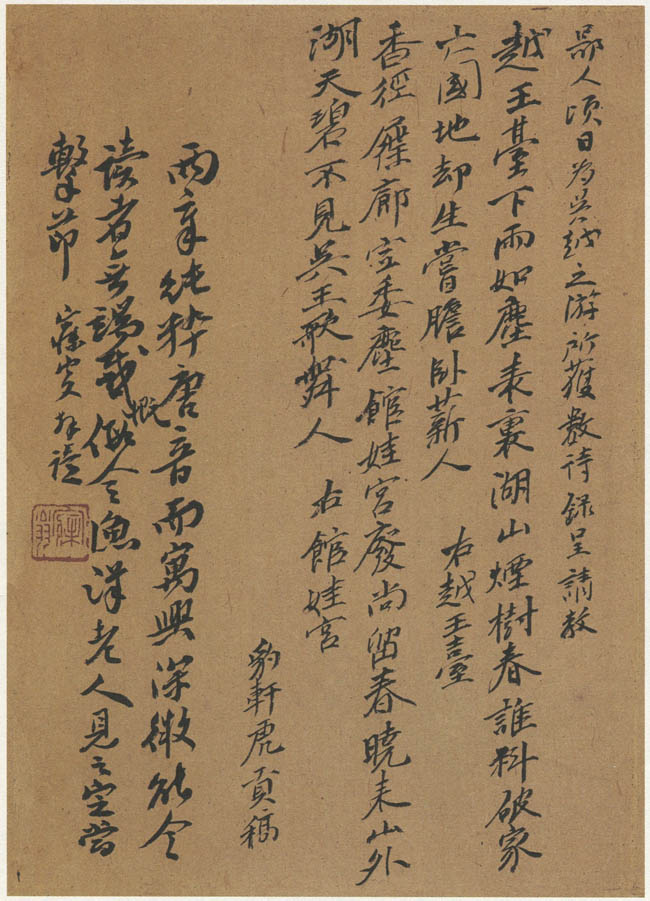 鄙人頃日為吳越之游所獲數詩録呈請教
越王臺下雨如塵表裏湖山煙樹春誰料破家
亡國地却生嘗膽臥薪人　右越王臺
香徑屧廊空委塵館娃宮廢尚留春曉来山外
湖天碧不見吳王歌舞人　右館娃宮
豹軒虎稿
兩章純粹唐音而寓興深微能令
讀者無端感概假令漁洋老人見之定當
擊節　寐叟拜讀